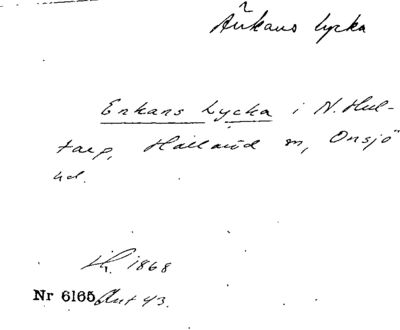 Änkans lycka
Enkans Lycka i N. Hul-
tarp, Hallaröd sn, Onsjö
hd.
1868
Nr 6165 Ant 43.